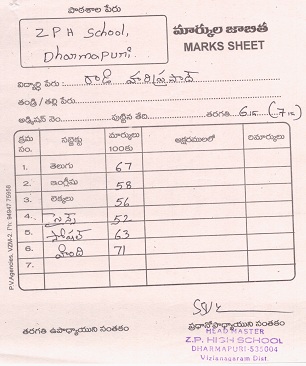 పాఠశాల పేరు
Z P H School,
Dharmapuri.
మార్కుల జాబిత
MARKS SHEET
విద్యార్థి పేరు : గాడి హరిప్రసాద్
తండ్రి / తల్లి పేరు :
అడ్మిషన్ నెం. పుట్టిన తేది. తరగతి 6
క్రమ సం. సబ్జెక్టు మార్కులు 100కు అక్షరములలో రిమార్కులు
1. తెలుగు 67
2. ఇంగ్లీషు 58
3. లెక్కలు 56
4. సైన్స్ 52
5. సోషల్ 63
6. హిందీ 71
7.
P.V.Agencies, VZM-2.
తరగతి ఉపాధ్యాయుని సంతకం
ప్రధానోపాధ్యాయుని సంతకం
HEAD MASTER
Z.P. HIGH SCHOOL
DHARMAPURI-535004
Vizianagaram Dist.